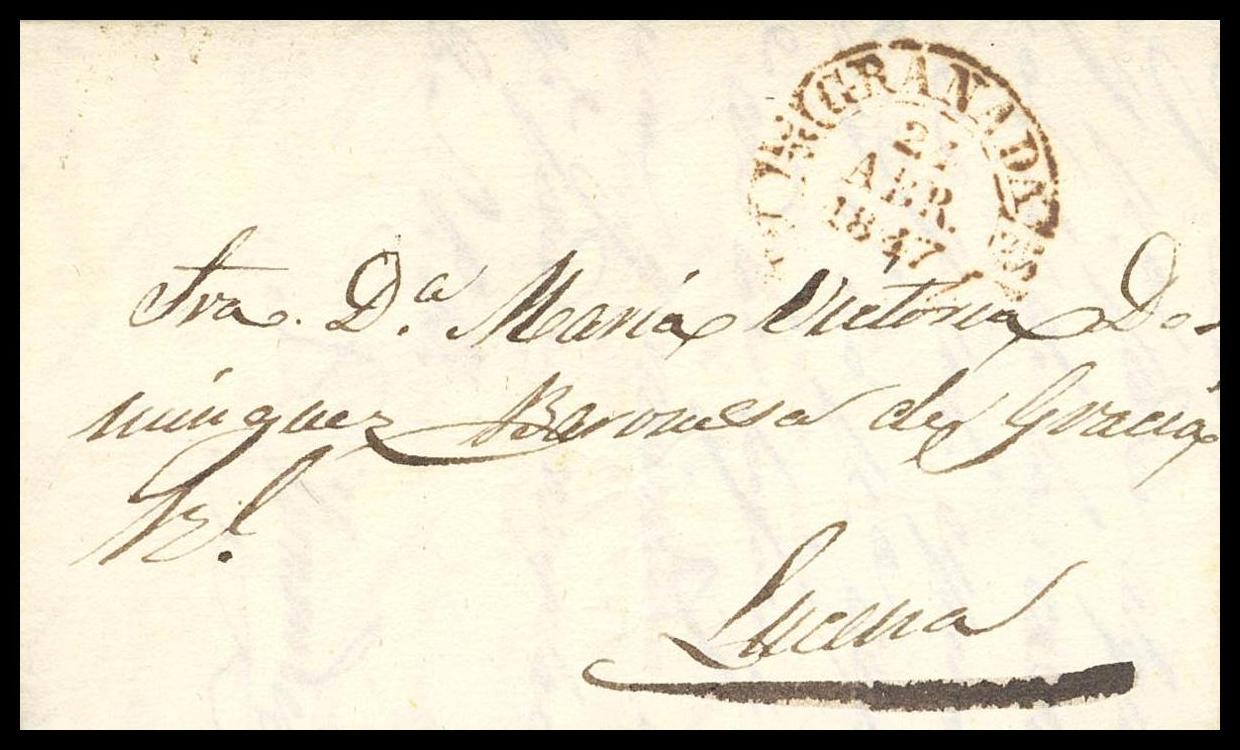 GRANADA
2
ABR.
1847
Sra. D.ª María Victoria Do-
minguez Baronesa de Gracia
Rl.
Lucena